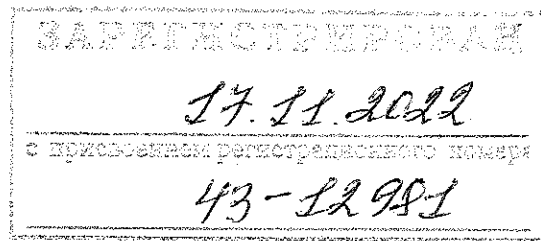 ЗАРЕГИСТРИРОВАН
17.11.2022
с присвоением регистрационного номера
43-12981